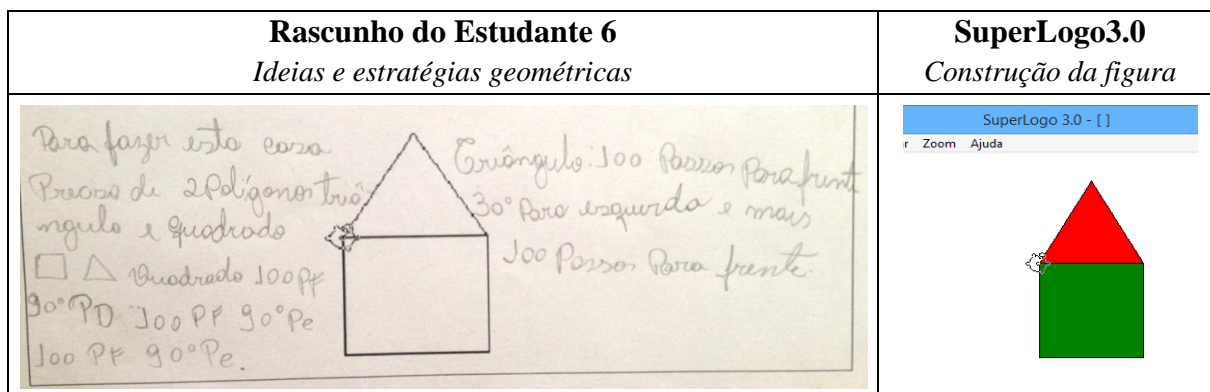 Rascunho do Estudante 6
Ideias e estratégias geométricas
SuperLogo3.0
Construção da figura
Para fazer esta casa
Preciso de 2 Polígonos triâ
ngulo e quadrado
Quadrado 100 PF
90° PD 100 PF 90° Pe
100 PF 90° Pe.
Triângulo: 100 Passos Para frent
30° Para esquerda e mais
100 Passos Para frente.
SuperLogo 3.0 - [ ]
r Zoom Ajuda